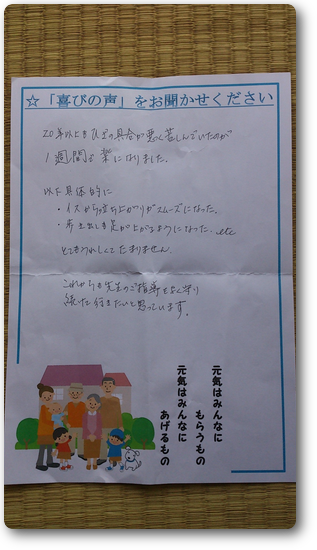 ☆「喜びの声」をお聞かせください
20年以上もひざの具合が悪く苦しんでいたのが
1週間で楽になりました。
以下具体的に
・イスから立ち上がりがスムーズになった。
・歩き出しも足が上がるようになった。etc
とてもうれしくてたまりません。
これからも先生のご指導をよく守り
続けて行きたいと思っています。
元気はみんなに
もらうもの
元気はみんなに
あげるもの